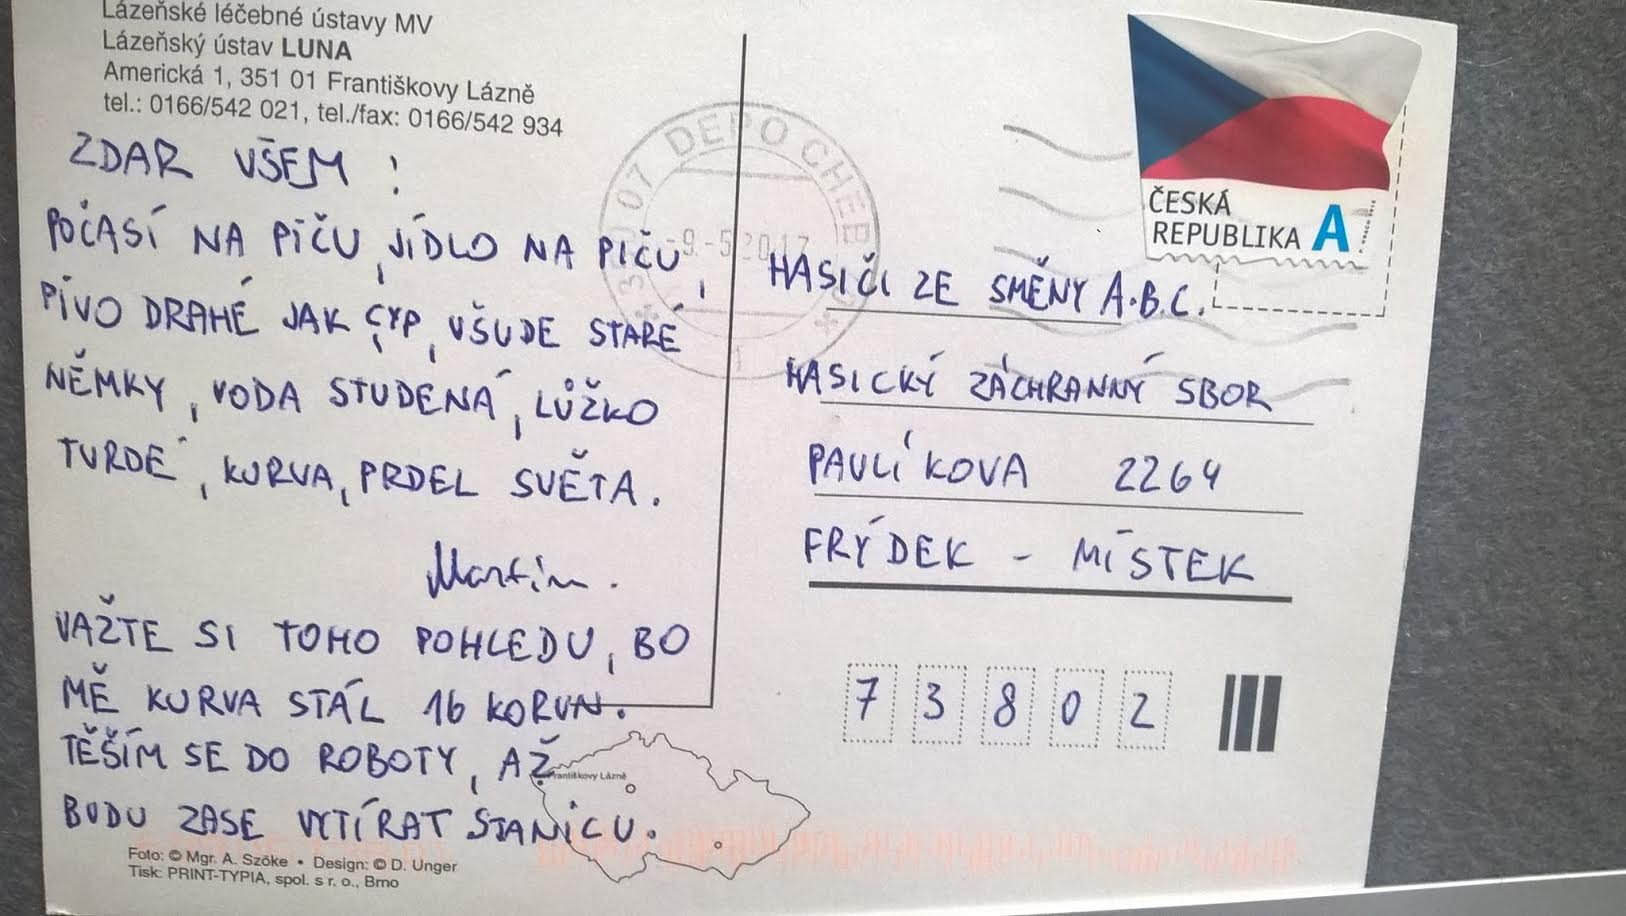 Lázeňské léčebné ústavy MV
Lázeňský ústav LUNA
Americká 1, 351 01 Františkovy Lázně
tel.: 0166/542 021, tel./fax: 0166/542 934
ZDAR VŠEM !
POČASÍ NA PIČU, JÍDLO NA PIČU,
PIVO DRAHÉ JAK CYP, VŠUDE STARÉ
NĚMKY, VODA STUDENÁ, LŮŽKO
TURDÉ, KURVA, PRDEL SVĚTA.
Martin.
VAŽTE SI TOHO POHLEDU, BO
MĚ KURVA STÁL 16 KORUN.
TĚŠÍM SE DO ROBOTY, AŽ
BUDU ZASE VYTÍRAT STANICU.
Františkovy Lázně
Foto: © Mgr. A. Szöke • Design: © D. Unger
Tisk: PRINT-TYPIA, spol. s r. o., Brno
07 DEPO CHEB
-9.-5.2017
1
ČESKÁ
REPUBLIKA A
HASIČI ZE SMĚNY A.B.C.
HASICKÝ ZÁCHRANNÝ SBOR
PAVLÍKOVA 2264
FRÝDEK - MÍSTEK
7 3 8 0 2